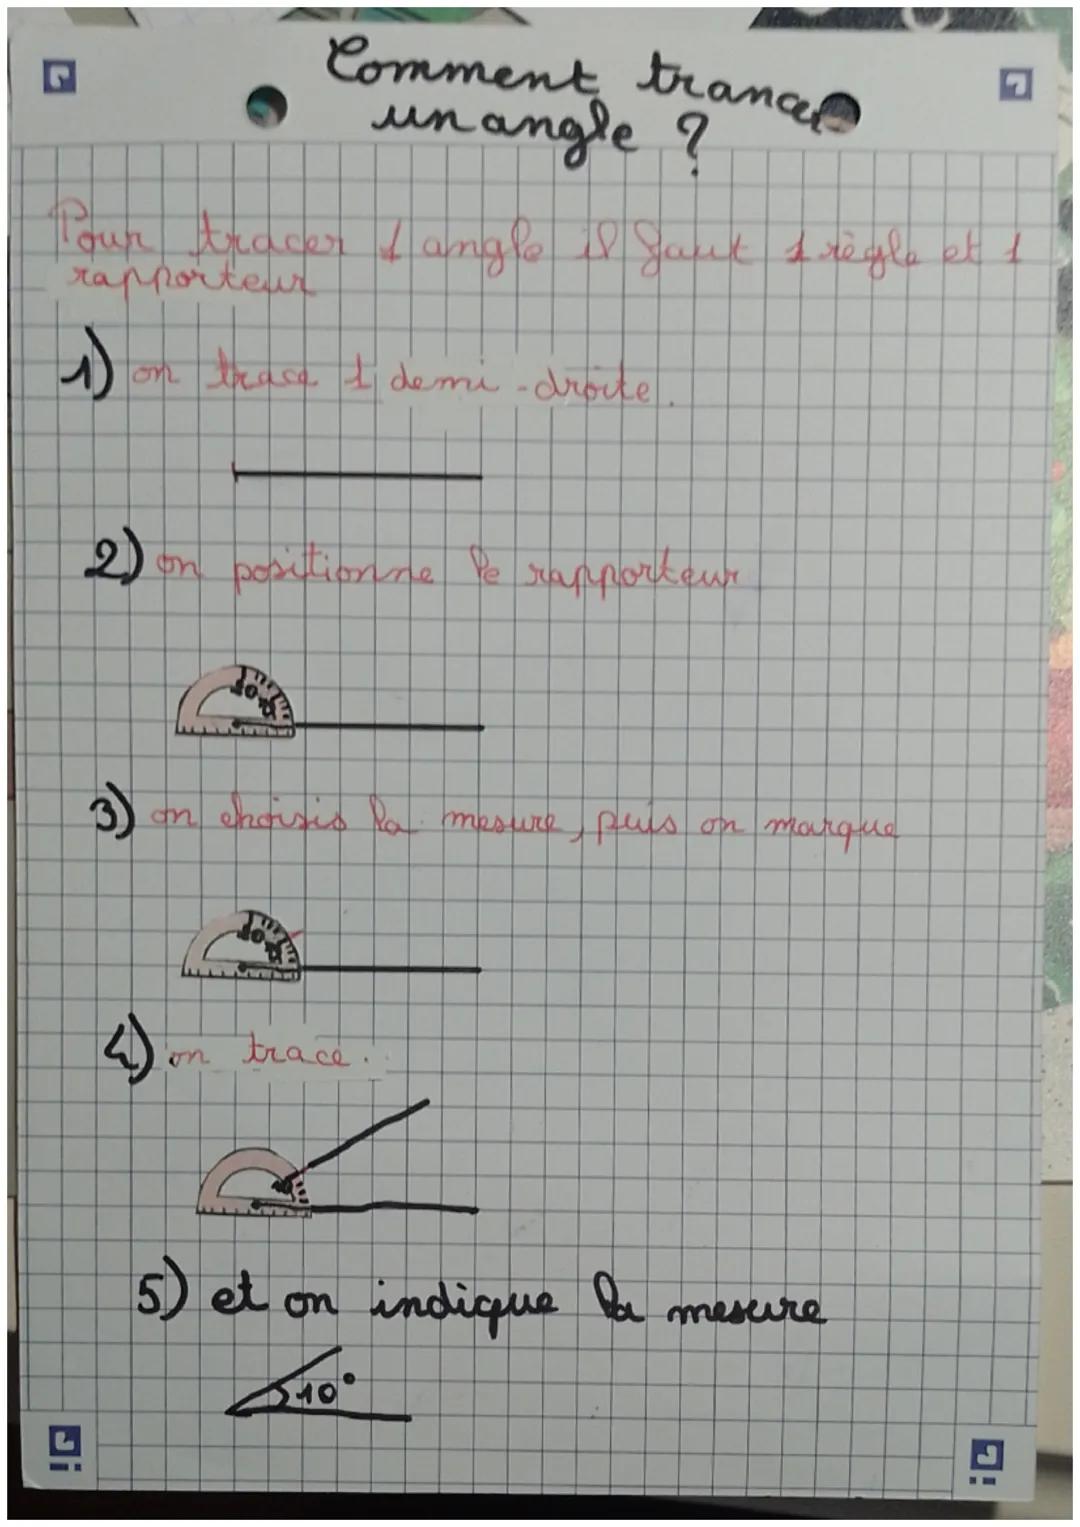 Comment trancer
un angle ?
Pour tracer 1 angle il faut 1 règle et 1
rapporteur
1) on trace 1 demi-droite.
2) on positionne le rapporteur
3) on choisis la mesure, puis on marque
4) on trace.
5) et on indique la mesure
10°